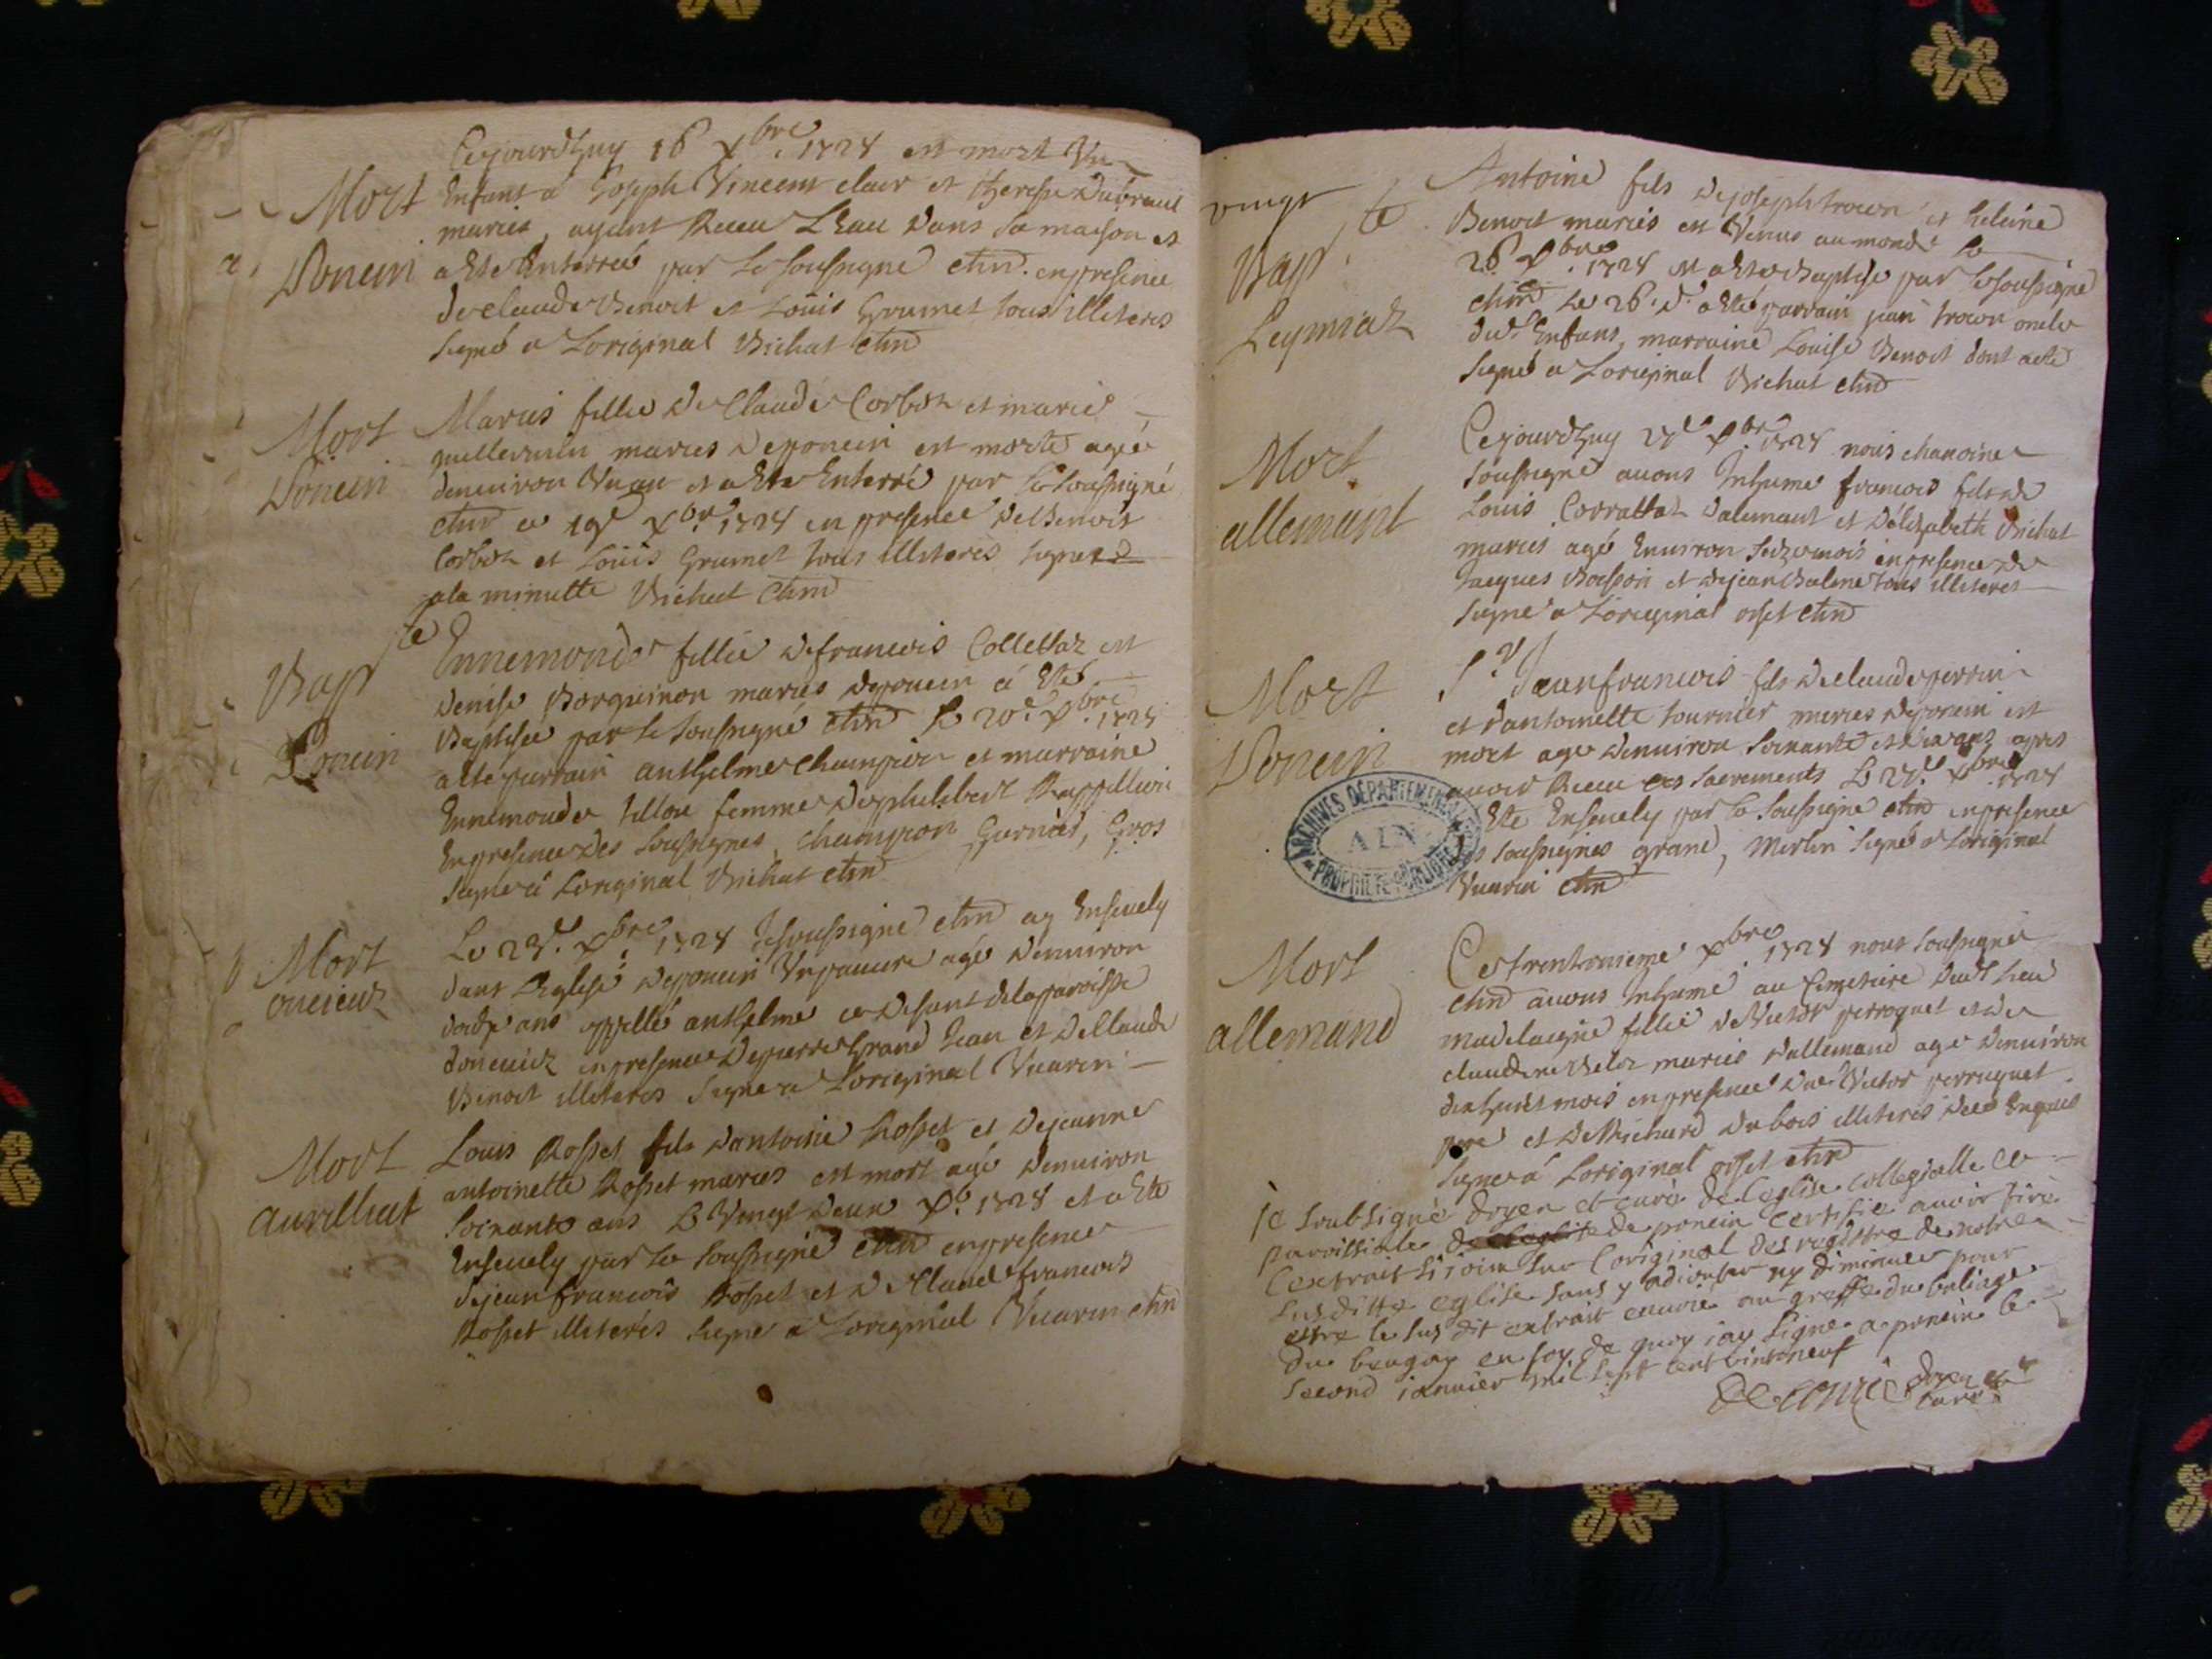 Cejourdhuy 16 xbre 1728 est mort Un
Mort Enfant a Joseph Vincent clair et therese Dubreuil
mariés, ayant Receu L'Eau dans sa maison et
Poncin a Eté Enterré par le soussigné chne. en presence
de claude Benoit et Louis Grumet tous illiteres
signé a L'original Bichat chne
Mort Marie fillie de Claude Corboz et marie
mariés de poncin est morte agée
Poncin denviron Un an et a Ete Enterré par le soussigné
chne ce 19e xbre 1728 en presence de Benoit
Corboz et Louis Grumet tous illiteres signe
a la minutte Bichat chne
Bapte Ennemonde fillie de francois Collettaz et
denise Borquinon mariés de poncin a Eté
Baptisée par le soussigné chne le 20e xbre 1728
Poncin a Eté parrain anthelme champion et marraine
Ennemonde tillon femme de philibert
En presence des soussignes, champion Gurnied, Gros
signe a L'original Bichat chne
Mort Le 23e xbre 1728 Je soussigné chne ay Ensevely
oncieuz dans L'Eglise de poncin Un pauvre agé denviron
douze ans appellé anthelme ce disant de la paroisse
doncieuz en presence de pierre Grand Jean et de Claude
Benoit illiteres signe a L'original Vuarin
Mort Louis Rosset fils d'antoine Rosset et de jeanne
antoinette Rosset mariés est mort agé denviron
avrillat soixante ans Le Vingt deux xb. 1728 et a Ete
Ensevely par le soussigné chne en presence
de jean francois Rosset et de Claude francois
Rosset illiterés signe a L'original Vuarin chne
vingt
Bapte Antoine fils de joseph trocon et heleine
Benoit mariés est Venus au monde le
26 xbre 1728 et a Ete Baptisé par le soussigné
Leymiat chne Le 26. d. a Eté parrain jean trocon oncle
dud. Enfant, marraine Louise Benoit dont acte
signé a L'original Bichat chne
Mort Cejourdhuy 27e xbre 1728 nous chanoine
soussigné avons Inhumé francois fils de
allemant Louis Corrattaz dalemant et d'élizabeth Bichat
mariés agé Environ seize mois en presence de
Jacques Boisson et de jean Balme tous illiteres
signe a L'original orset chne
Mort Sr Jean francois fils de claude perrin
et dantoinette tournier mariés de poncin est
Poncin mort age denviron soixante et dix ans apres
avoir Receu ces sacrements Le 27e xbre 1728
Eté Ensevely par le soussigné chne en presence
des soussignes grand, Merlin signé a L'original
Vuarin chne
ARCHIVES DEPARTEMENTALES
AIN
PROPRIETE PUBLIQUE
Mort Ce trentunieme xbre 1728 nous soussigné
chne avons Inhumé au Cimetiere dudt lieu
allemand madelaigne fillie de Victor perroquet et de
claudine Veloz mariés d'allemand age denviron
dixhuit mois en presence dud. Victor perroquet
pere et de Richard Dubois illiteres de ce Enquis
signe a L'original orset chne
je soubsigné doyen et curé de leglise collegialle et
parroissialle de leglise de poncin certifie avoir tiré
lextrait ci joint sur loriginal des registre de notre
susditte eglise sans y adiouter ny diminuer pour
estre le sus dit extrait envoié au greffe du baliage
du beugey en foy de quoy jay signé a poncin le
second janvier mil sept cent vint neuf
doyen et
curé